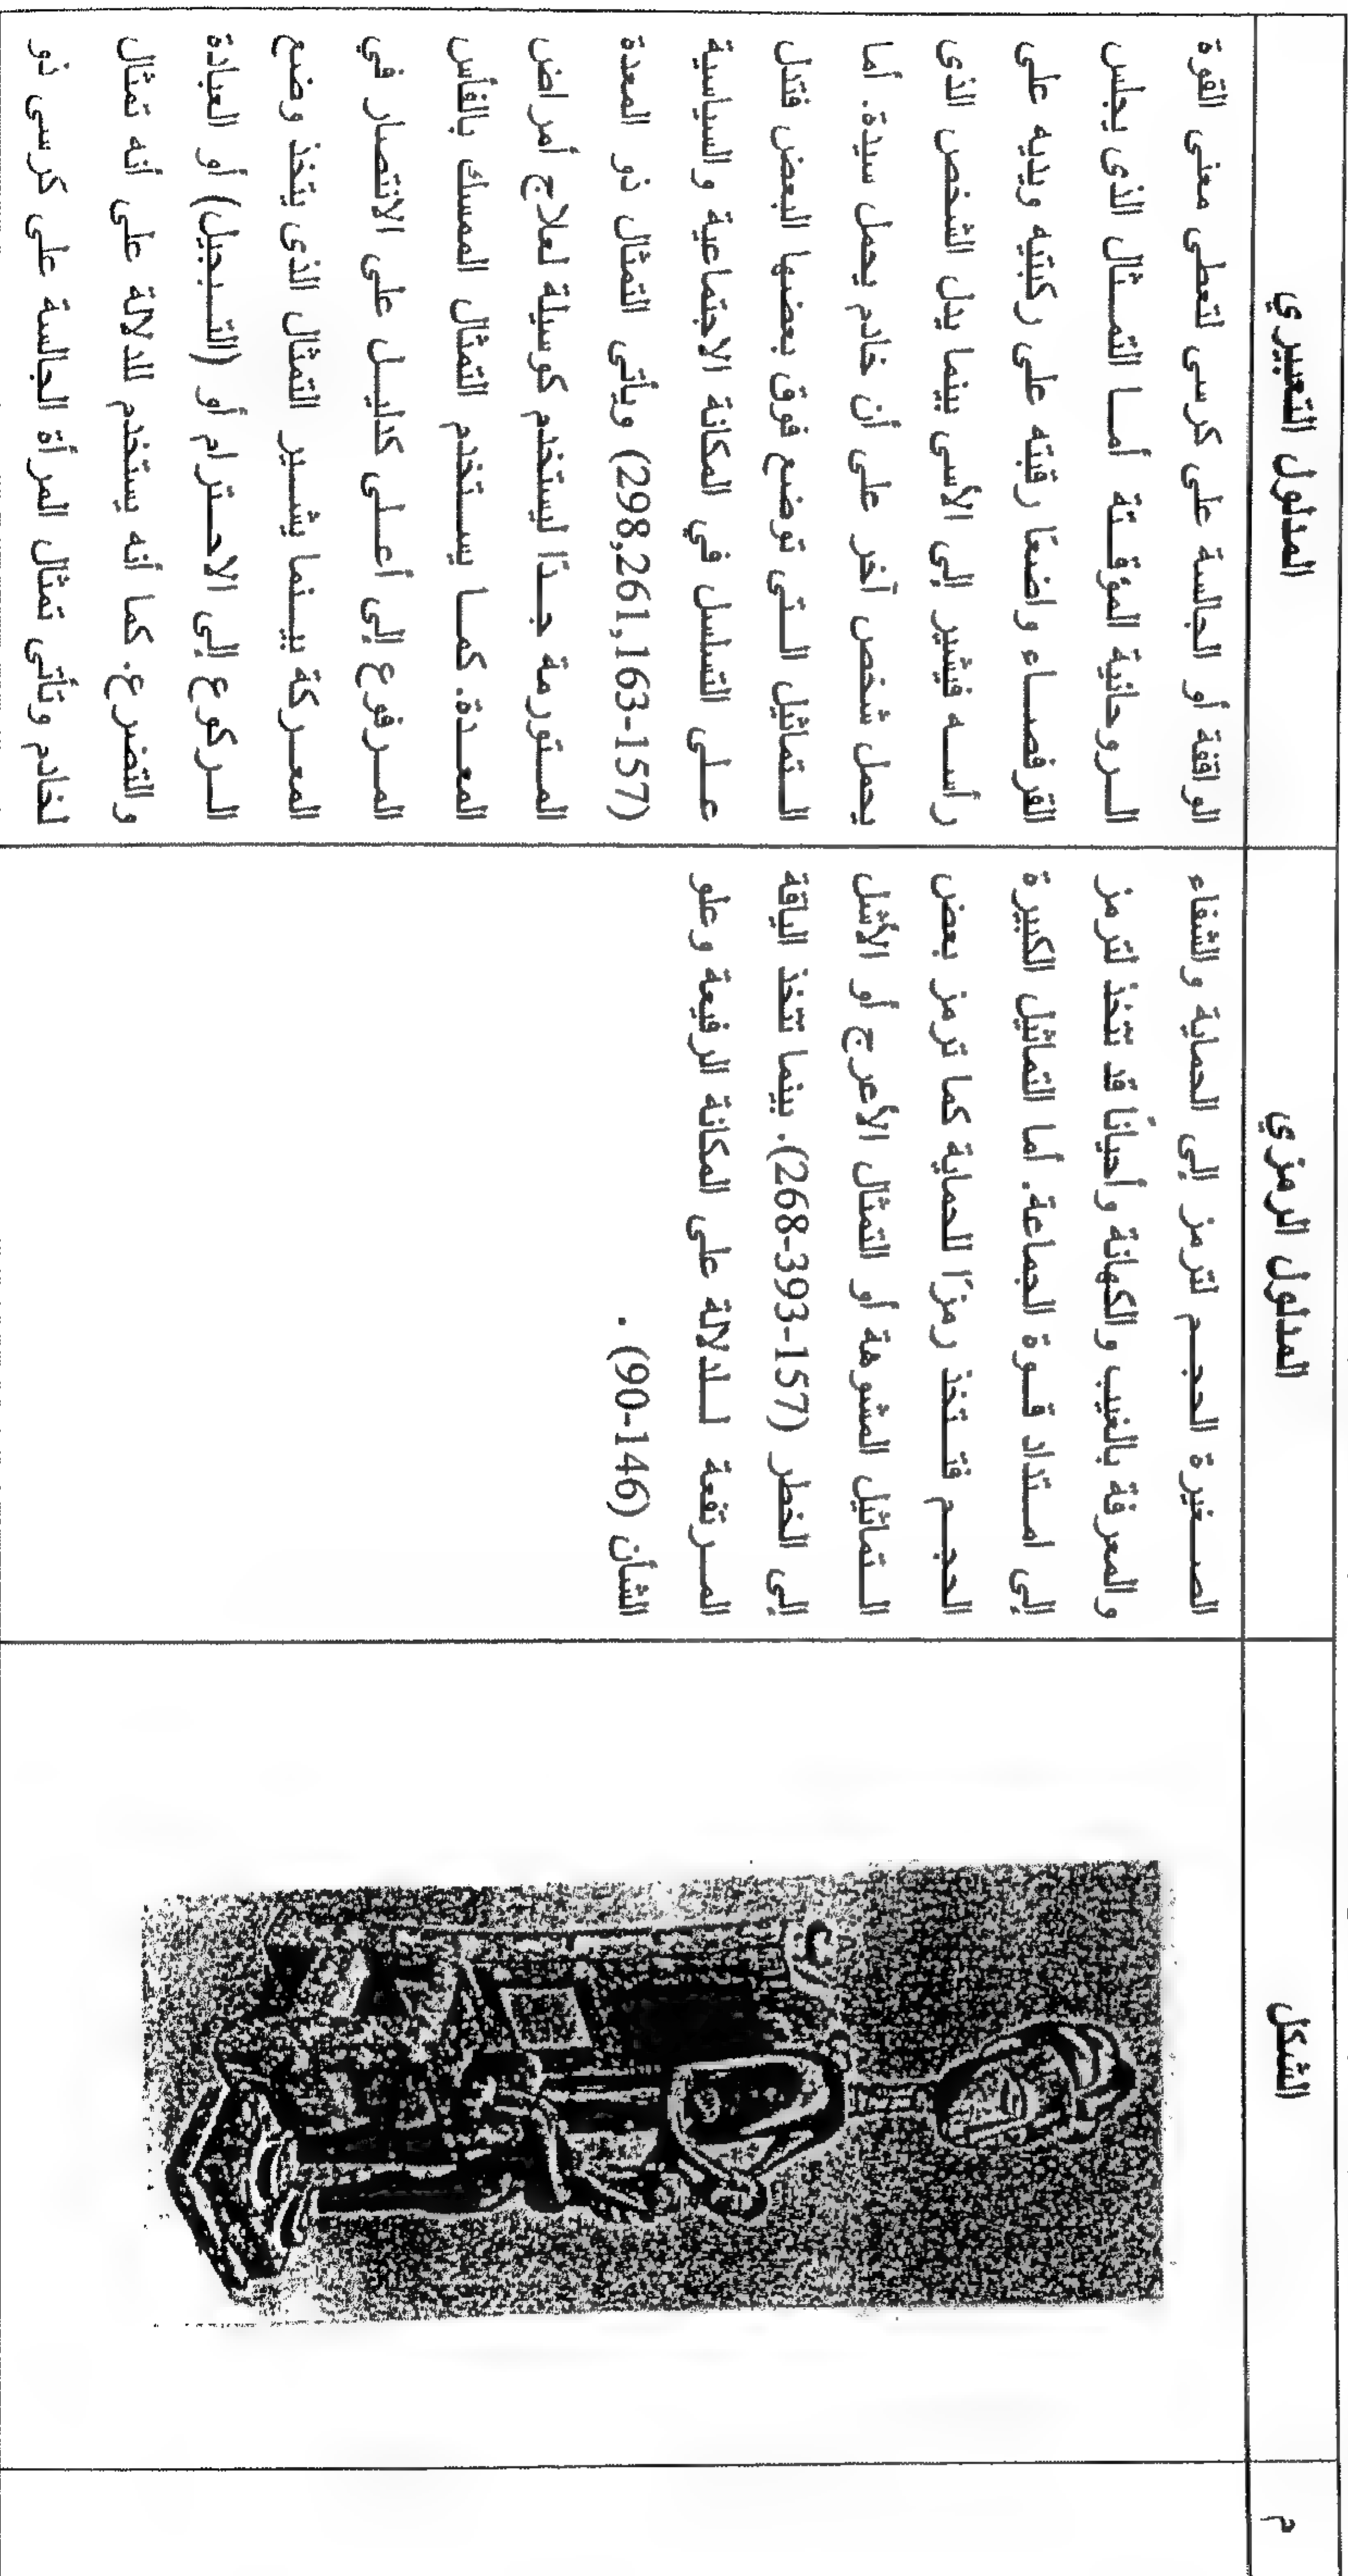 م
الشكل
المدلول الرمزي
المدلول التعبيري
الصغيرة الحجم لترمز إلى الحماية والشفاء
والمعرفة بالغيب والكهانة وأحيانًا قد تتخذ لترمز
إلى امتداد قوة الجماعة. أما التماثيل الكبيرة
الحجم فتتخذ رمزًا للحماية كما ترمز بعض
التماثيل المشوهة أو التمثال الأعرج أو الأشل
إلى الخطر (157-393-268). بينما تتخذ الياقة
المرتفعة للدلالة على المكانة الرفيعة وعلو
الشأن (146-90) .
الواقفة أو الجالسة على كرسى لتعطى معنى القوة
الروحانية المؤقتة أما التمثال الذى يجلس
القرفصاء واضعًا رقبته على ركبتيه ويديه على
رأسه فيشير إلى الأسى بينما يدل الشخص الذى
يحمل شخص آخر على أن خادم يحمل سيدة. أما
التماثيل التى توضع فوق بعضها البعض فتدل
على التسلسل في المكانة الاجتماعية والسياسية
(157-163,261,298) ويأتى التمثال ذو المعدة
المتورمة جدًا ليستخدم كوسيلة لعلاج أمراض
المعدة. كما يستخدم التمثال الممسك بالفأس
المرفوع إلى أعلى كدليل على الانتصار في
المعركة بينما يشير التمثال الذى يتخذ وضع
الركوع إلى الاحترام أو (التبجيل) أو العبادة
والتضرع. كما أنه يستخدم للدلالة على أنه تمثال
لخادم وتأتى تمثال المرأة الجالسة على كرسى ذو